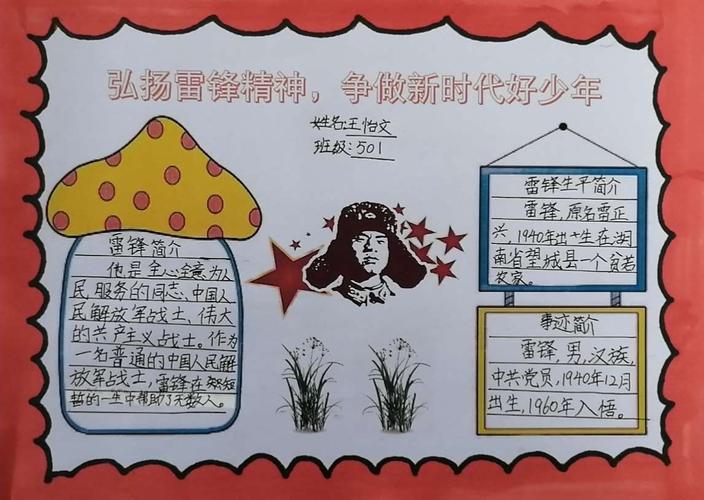 弘扬雷锋精神，争做新时代好少年
姓名:王怡文
班级:501
雷锋简介
他是全心全意为人
民服务的同志,中国人
民解放军战士,伟大
的共产主义战士。作为
一名普通的中国人民解
放军战士,雷锋在
的一生中帮助了无数人。
雷锋生平简介
雷锋,原名雷正
兴,1940年出生在湖
南省望城县一个贫苦
农家。
事迹简介
雷锋,男,汉族,
中共党员,1940年12月
出生,1960年入悟。